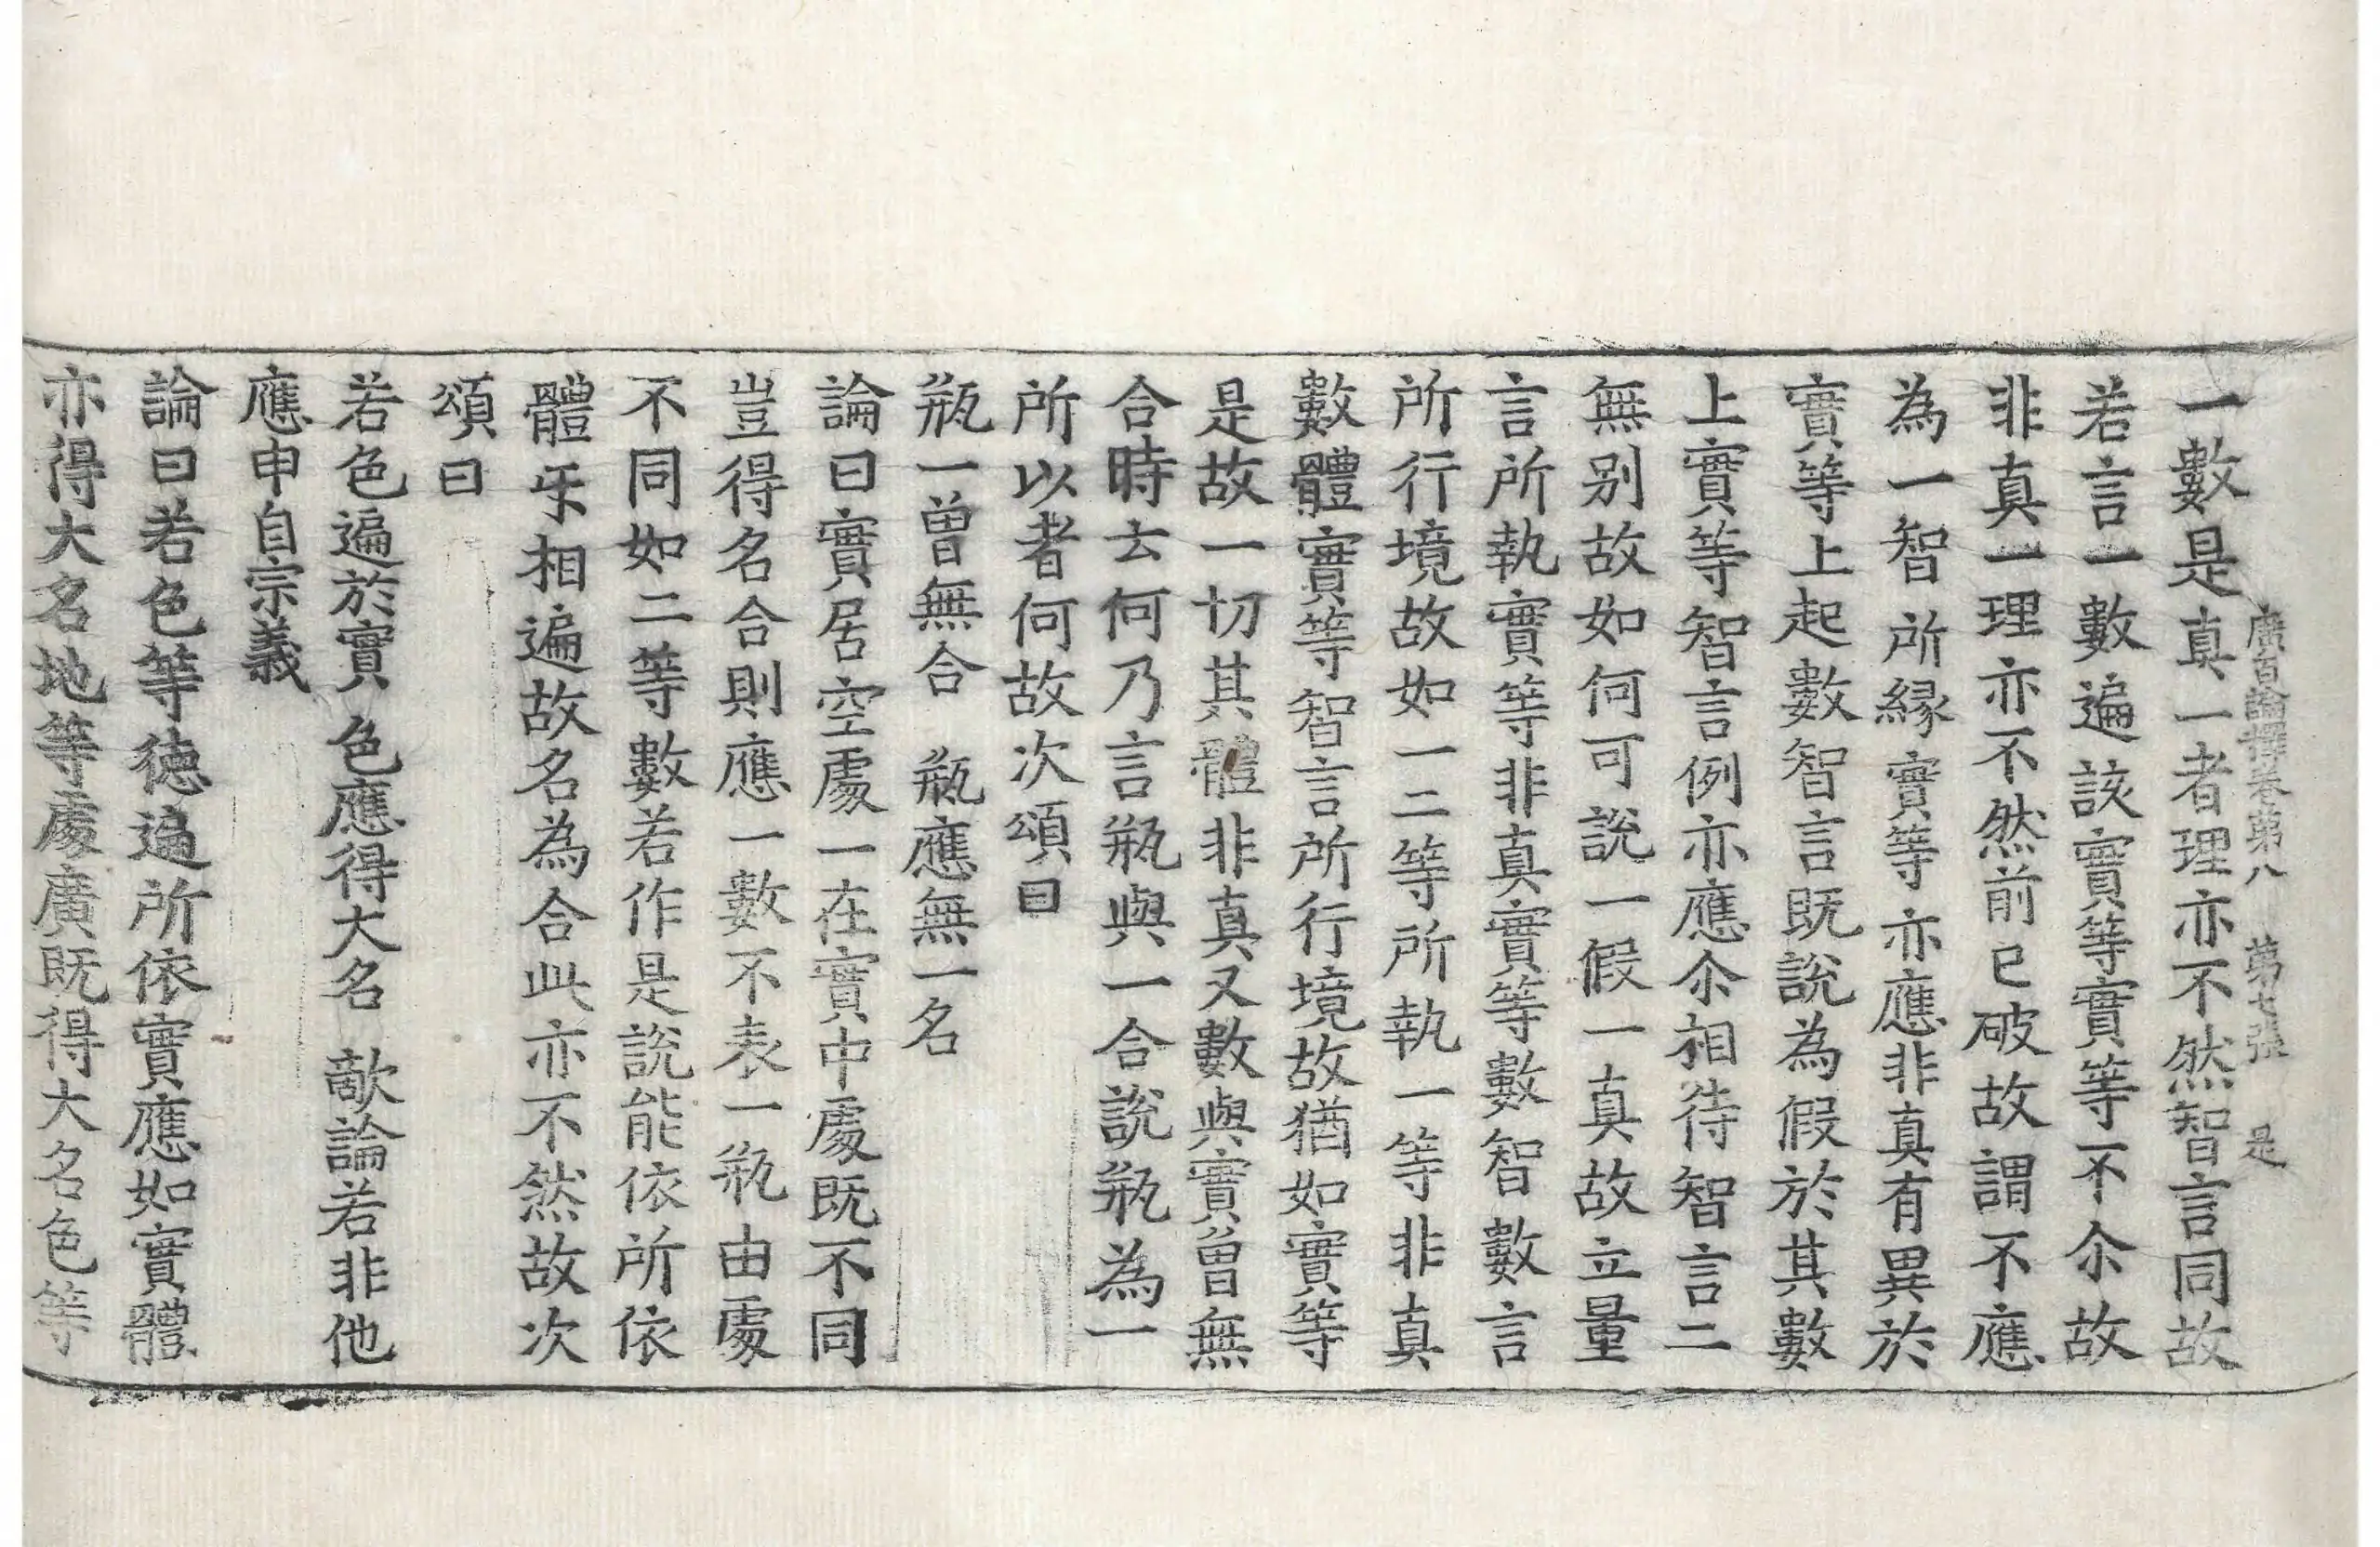 廣百論釋卷第八 第七張 是
一數是真一者理亦不然智言同故
若言一數遍該實等實等不尒故
非真一理亦不然前已破故謂不應
為一智所緣實等亦應非真有異於
實等上起數智言既說為假於其數
上實等智言例亦應尒相待智言二
無別故如何可說一假一真故立量
言所執實等非真實等數智數言
所行境故如一二等所執一等非真
數體實等智言所行境故猶如實等
是故一切其體非真又數與實曾無
合時云何乃言瓶與一合說瓶為一
所以者何故次頌曰
瓶一曾無合 瓶應無一名
論曰實居空處一在實中處既不同
豈得名合則應一數不表一瓶由處
不同如二等數若作是說能依所依
體乐相遍故名為合此亦不然故次
頌曰
若色遍於實 色應得大名 敵論若非他
應申自宗義
論曰若色等德遍所依實應如實體
亦得大名地等處廣既得大名色等